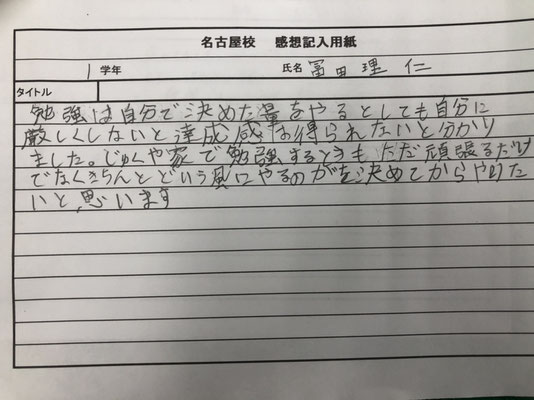 名古屋校 感想記入用紙
1 学年 氏名 冨田 理仁
タイトル
勉強は自分で決めた量をやるとしても自分に
厳しくしないと達成感が得られないと分かり
ました。じゅくや家で勉強するときも ただ頑張るだけ
でなくきちんとどいう風にやるのがを決めてからやりた
いと思います